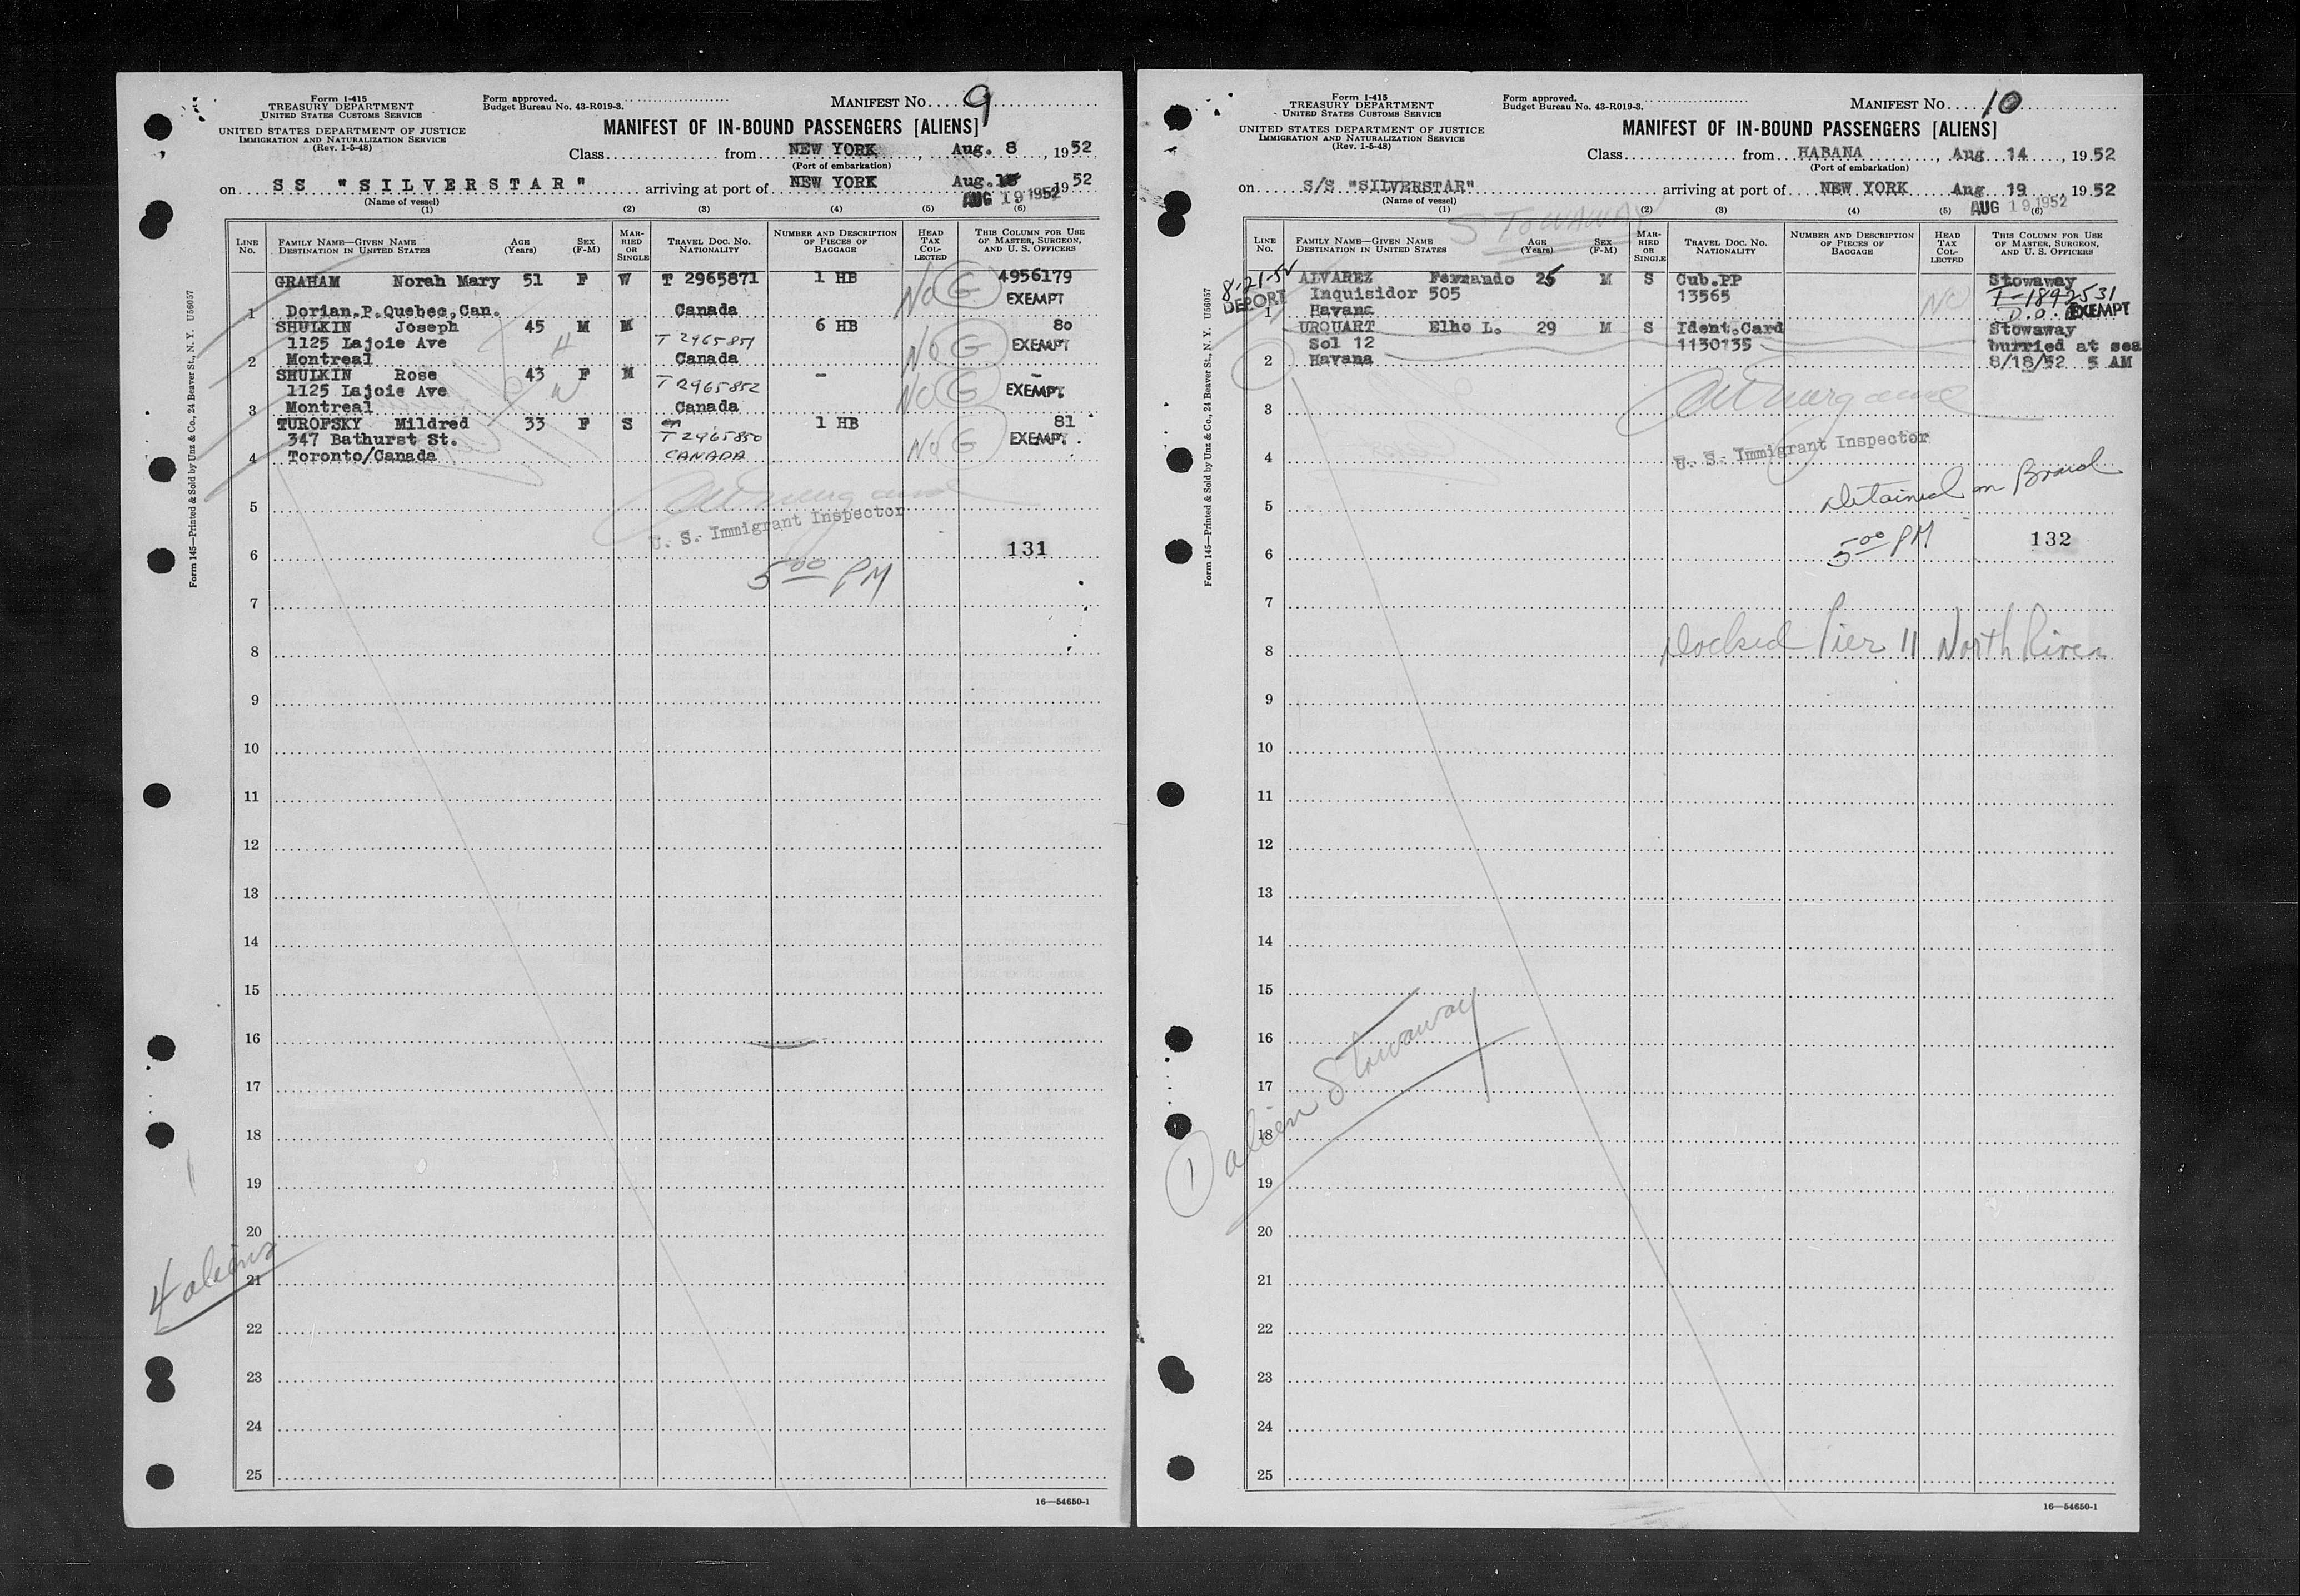 Form I-415
TREASURY DEPARTMENT
UNITED STATES CUSTOMS SERVICE
UNITED STATES DEPARTMENT OF JUSTICE
IMMIGRATION AND NATURALIZATION SERVICE
(Rev. 1-5-48)
Form approved.
Budget Bureau No. 43-R019-3.
MANIFEST NO. 9
MANIFEST OF IN-BOUND PASSENGERS [ALIENS]
Class from NEW YORK, Aug. 8, 1952
(Port of embarkation)
on SS "SILVERSTAR" arriving at port of NEW YORK Aug. 1952
(Name of vessel)
AUG 19 1952
(1) (2) (3) (4) (5) (6)
LINE NO. FAMILY NAME—GIVEN NAME DESTINATION IN UNITED STATES AGE (Years) SEX (F-M) MARRIED OR SINGLE TRAVEL DOC. NO. NATIONALITY NUMBER AND DESCRIPTION OF PIECES OF BAGGAGE HEAD TAX COLLECTED THIS COLUMN FOR USE OF MASTER, SURGEON, AND U. S. OFFICERS
GRAHAM Norah Mary 51 F W T 2965871 1 HB No G 4956179
EXEMPT
1 Dorian.P.Quebec,Can. Canada
SHULKIN Joseph 45 M M 6 HB 80
1125 Lajoie Ave T 2965851 No G EXEMPT
2 Montreal Canada
SHULKIN Rose 43 F M - -
1125 Lajoie Ave T 2965852 No G EXEMPT
3 Montreal Canada
TUROFSKY Mildred 33 F S 1 HB 81
347 Bathurst St. T 2965850 No G EXEMPT
4 Toronto/Canada CANADA
5
U. S. Immigrant Inspector
6 131
5 00 PM
7
8
9
10
11
12
13
14
15
16
17
18
19
20
4 aliens
21
22
23
24
25
16—54650-1
Form 145—Printed & Sold by Unz & Co., 24 Beaver St., N. Y. U56057
Form I-415
TREASURY DEPARTMENT
UNITED STATES CUSTOMS SERVICE
UNITED STATES DEPARTMENT OF JUSTICE
IMMIGRATION AND NATURALIZATION SERVICE
(Rev. 1-5-48)
Form approved.
Budget Bureau No. 43-R019-3.
MANIFEST NO. 10
MANIFEST OF IN-BOUND PASSENGERS [ALIENS]
Class from HABANA, Aug 14, 1952
(Port of embarkation)
on S/S "SILVERSTAR" arriving at port of NEW YORK Aug 19, 1952
(Name of vessel)
AUG 19 1952
(1) (2) (3) (4) (5) (6)
STOWAWAY
LINE NO. FAMILY NAME—GIVEN NAME DESTINATION IN UNITED STATES AGE (Years) SEX (F-M) MARRIED OR SINGLE TRAVEL DOC. NO. NATIONALITY NUMBER AND DESCRIPTION OF PIECES OF BAGGAGE HEAD TAX COLLECTED THIS COLUMN FOR USE OF MASTER, SURGEON, AND U. S. OFFICERS
8-21-52 ALVAREZ Fernando 25 M S Cub.PP Stowaway
DEPORT Inquisidor 505 13565 NO T-1892531
1 Havana EXEMPT
URQUART Elho L. 29 M S Ident.Card Stowaway
Sol 12 1130135 burried at sea
2 Havana 8/18/52 5 AM
3
4 U. S. Immigrant Inspector
5 Detained on Board
6 5 00 PM 132
7
8 Docked Pier 11 North River
9
10
11
12
13
14
15
16
17
18
1 alien Stowaway
19
20
21
22
23
24
25
16—54650-1
Form 145—Printed & Sold by Unz & Co., 24 Beaver St., N. Y. U56057